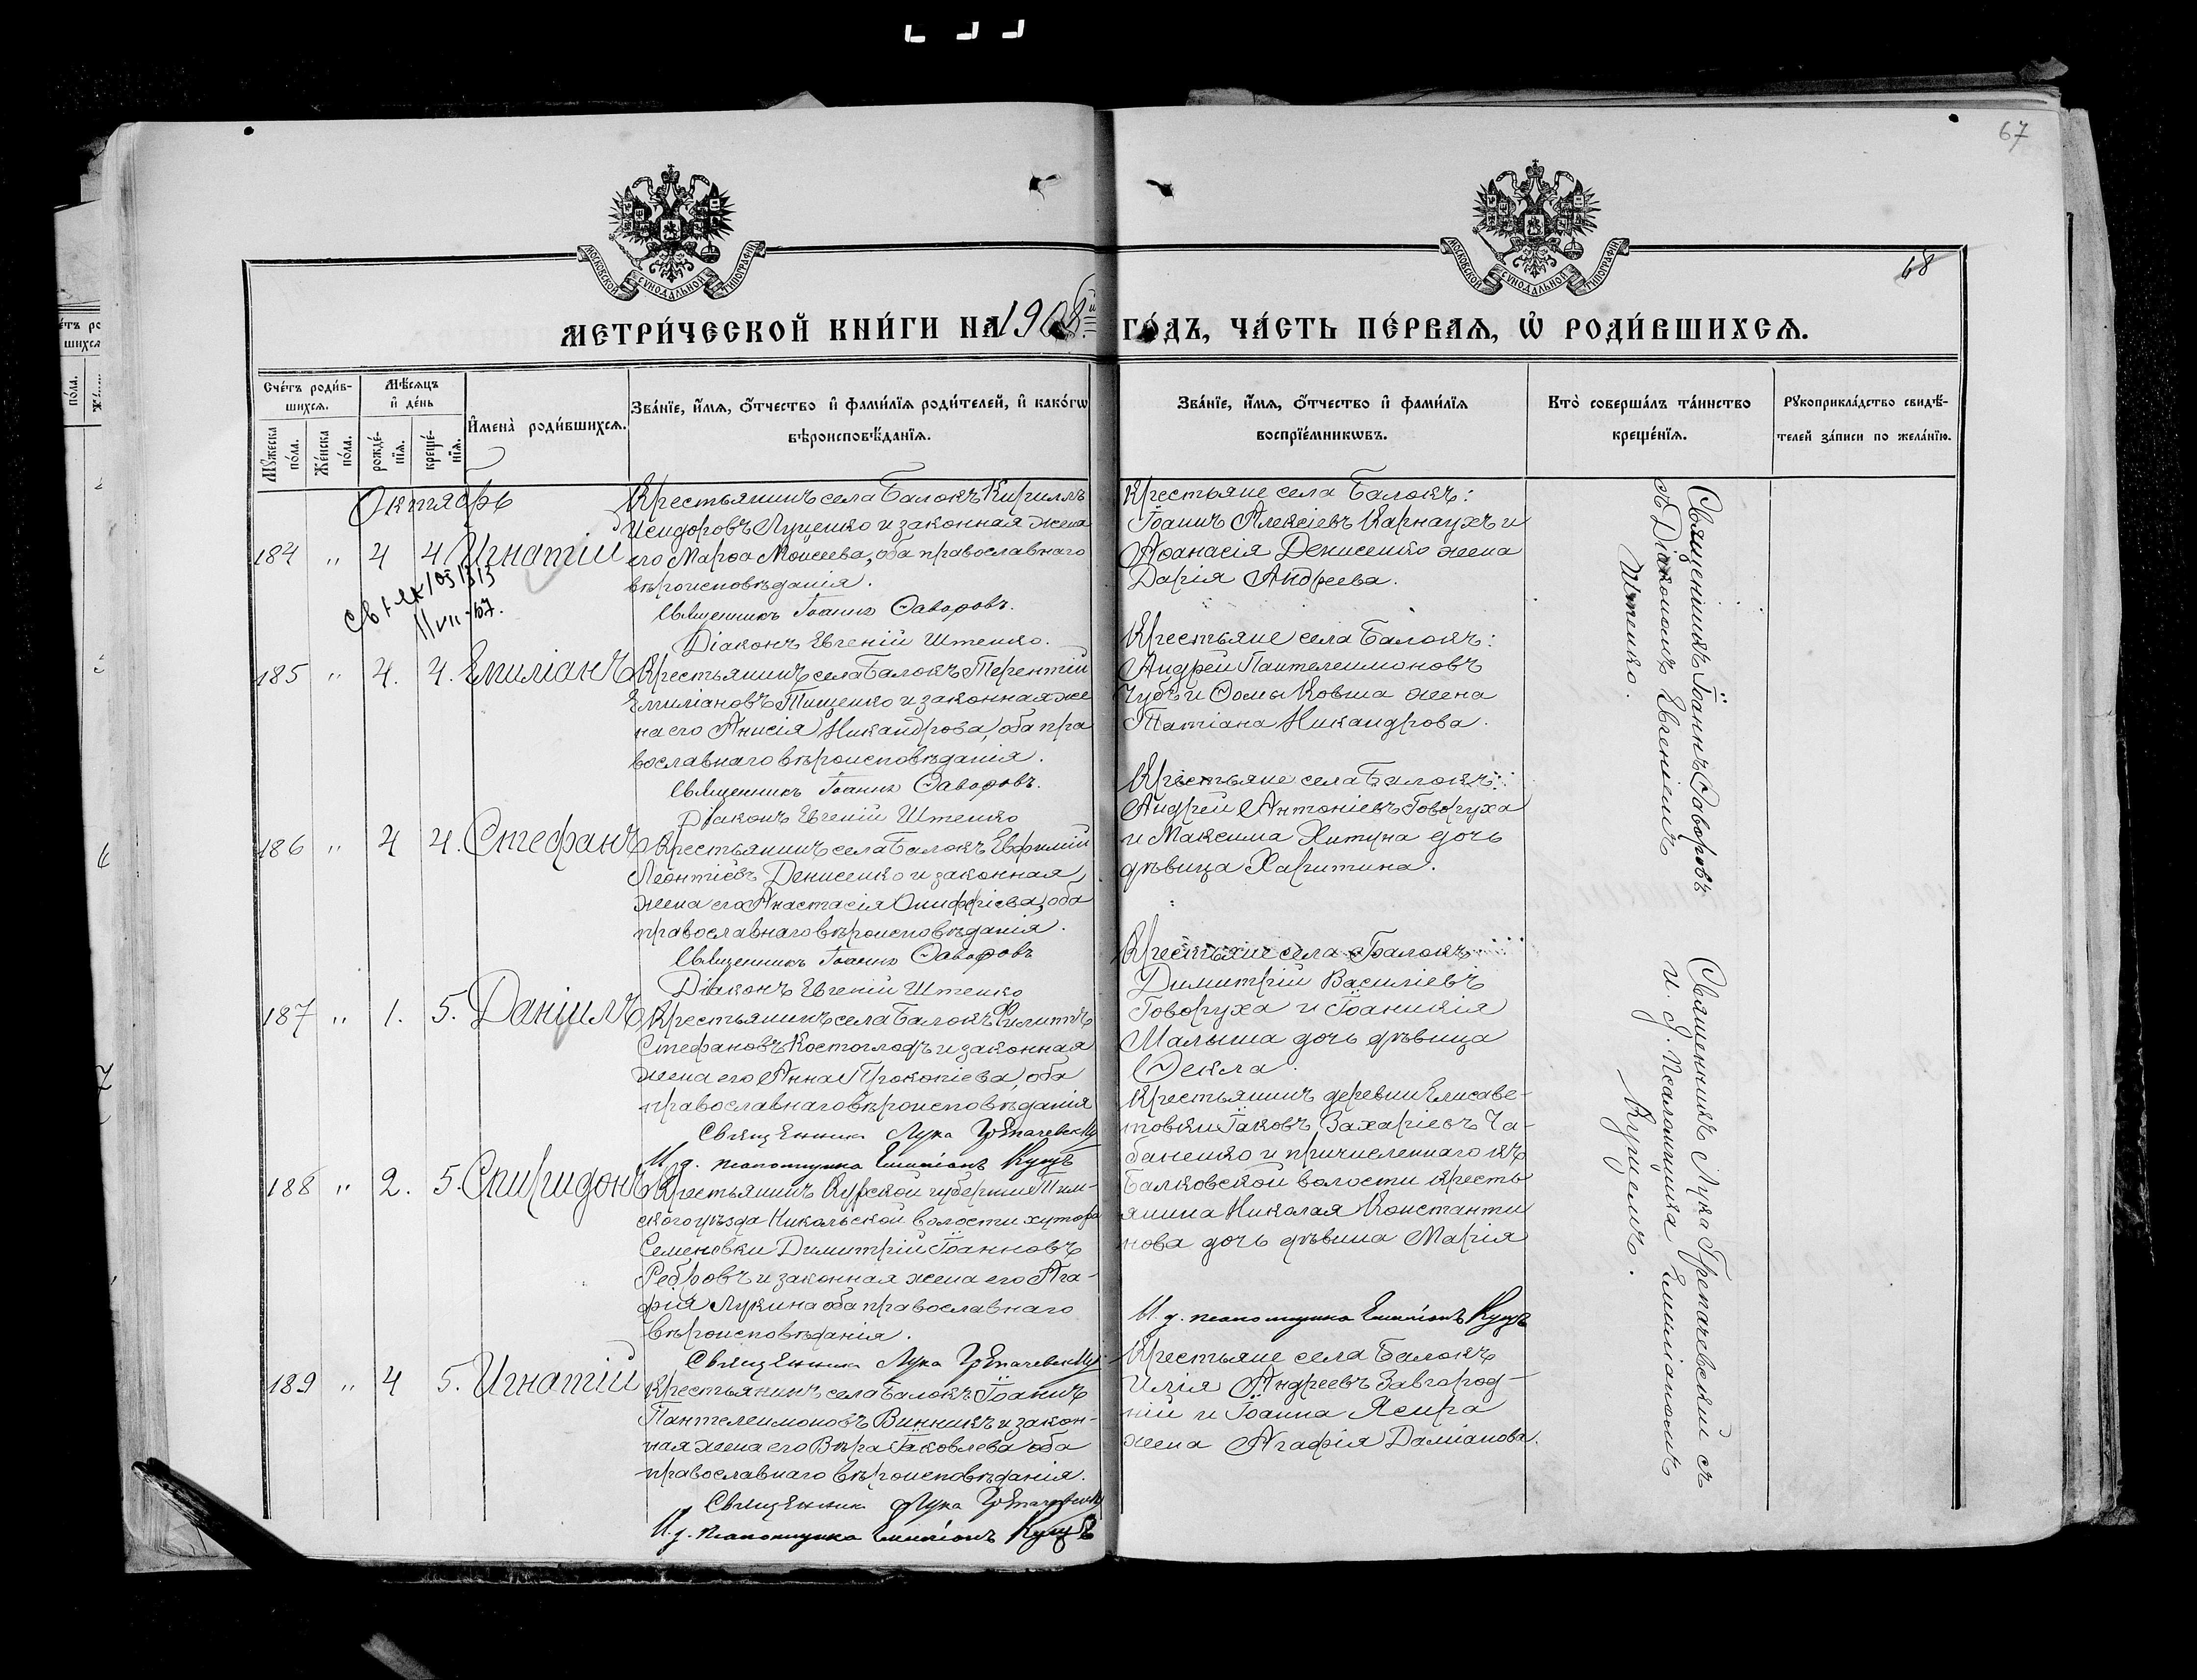 67
68
МОСКОВСКОЙ СѴНОДАЛЬНОЙ ТИПОГРАФІИ
МОСКОВСКОЙ СѴНОДАЛЬНОЙ ТИПОГРАФІИ
МЕТРИ́ЧЕСКОЙ КНИ́ГИ НА 1908й ГО́ДЪ, ЧА́СТЬ ПЕ́РВАЯ, Ѽ РОДИ́ВШИХСЯ.
Сче́тъ роди́в-
шихся.
Мѣ́сяцъ
и҆ де́нь
Мꙋ́жеска
по́ла.
Же́нска
по́ла.
рожде́-
нїя.
креще́-
нїя.
И҆мена̀ роди́вшихся.
Зва́нїе, и҆́мя, ѻ҆́тчество и҆ фами́лїя роди́телей, и҆ како́гѡ
вѣроисповѣ́данїя.
Зва́нїе, и҆́мя, ѻ҆́тчество и҆ фами́лїя
воспрїе́мникѡвъ.
Кто̀ соверша́лъ та́инство
креще́нїя.
Рꙋкоприкла́дство свидѣ́-
телей за́писи по жела́нїю.
Октябрь
184 " 4 4 Игнатій
11/VII-67.
Крестьянинъ села Балокъ Кириллъ
Исидоровъ Луценко и законная жена
его Марѳа Моисеева, оба православнаго
вѣроисповѣданія.
Священникъ Іоаннъ Ѳаворовъ.
Діаконъ Евгеній Штепко.
Крестьяне села Балокъ:
Іоаннъ Алексіевъ Карнаухъ и
Аѳанасія Денисенко жена
Дарія Андреева.
185 " 4. 4. Емиліанъ
Крестьянинъ села Балокъ Терентій
Емиліановъ Тищенко и законная же
на его Анисія Никандрова, оба пра
вославнаго вѣроисповѣданія.
Священникъ Іоаннъ Ѳаворовъ.
Діаконъ Евгеній Штепко
Крестьяне села Балокъ:
Андрей Пантелеимоновъ
Чубъ и Ѳомы Ковша жена
Татіана Никандрова.
186 " 4 4. Стефанъ
Крестьянинъ села Балокъ Евфимій
Леонтіевъ Денисенко и законная
жена его Анастасія Онифріева, оба
православнаго вѣроисповѣданія.
Священникъ Іоаннъ Ѳаворовъ
Діаконъ Евгеній Штепко
Крестьяне села Балокъ:
Андрей Антоніевъ Говоруха
и Максима Хитуна дочь
дѣвица Харитина.
Священникъ Іоаннъ Ѳаворовъ
съ Діакономъ Евгеніемъ
Штепко.
187 " 1. 5. Даніилъ
Крестьянинъ села Балокъ Филиппъ
Стефановъ Костоглодъ и законная
жена его Анна Прокопіева, оба
православнаго вѣроисповѣданія
Священникъ Лука Грепачевскій
И.д. псаломщика Емиліанъ Куцъ
Крестьяне села Балокъ
Димитрій Василіевъ
Говоруха и Іоанникія
Малыша дочь дѣвица
Ѳекла.
188 " 2. 5. Спиридонъ
Крестьянинъ Курской губерніи Тим-
скаго уѣзда Никольской волости хутора
Семеновки Димитрій Іоанновъ
Ребровъ и законная жена его Ага-
фія Лукина оба православнаго
вѣроисповѣданія.
Священникъ Лука Грепачевскій
Крестьянинъ деревни Елисаве-
товки Іаковъ Захаріевъ Ча-
баненко и причисленнаго къ
Балковской волости кресть
янина Николая Константи
нова дочь дѣвица Марія
И.д. псаломщика Емиліанъ Куцъ
189 " 4 5. Игнатій
Крестьянинъ села Балокъ Іоаннъ
Пантелеимоновъ Винникъ и закон-
ная жена его Вѣра Іаковлева оба
православнаго вѣроисповѣданія.
Священникъ Лука Грепачевскій
И.д. псаломщика Емиліанъ Куцъ
Крестьяне села Балокъ
Илія Андреевъ Завгород-
ній и Іоанна Ясира
жена Агафія Даміанова.
Священникъ Лука Грепачевскій съ
и. д. псаломщика Емиліаномъ
Куцемъ.